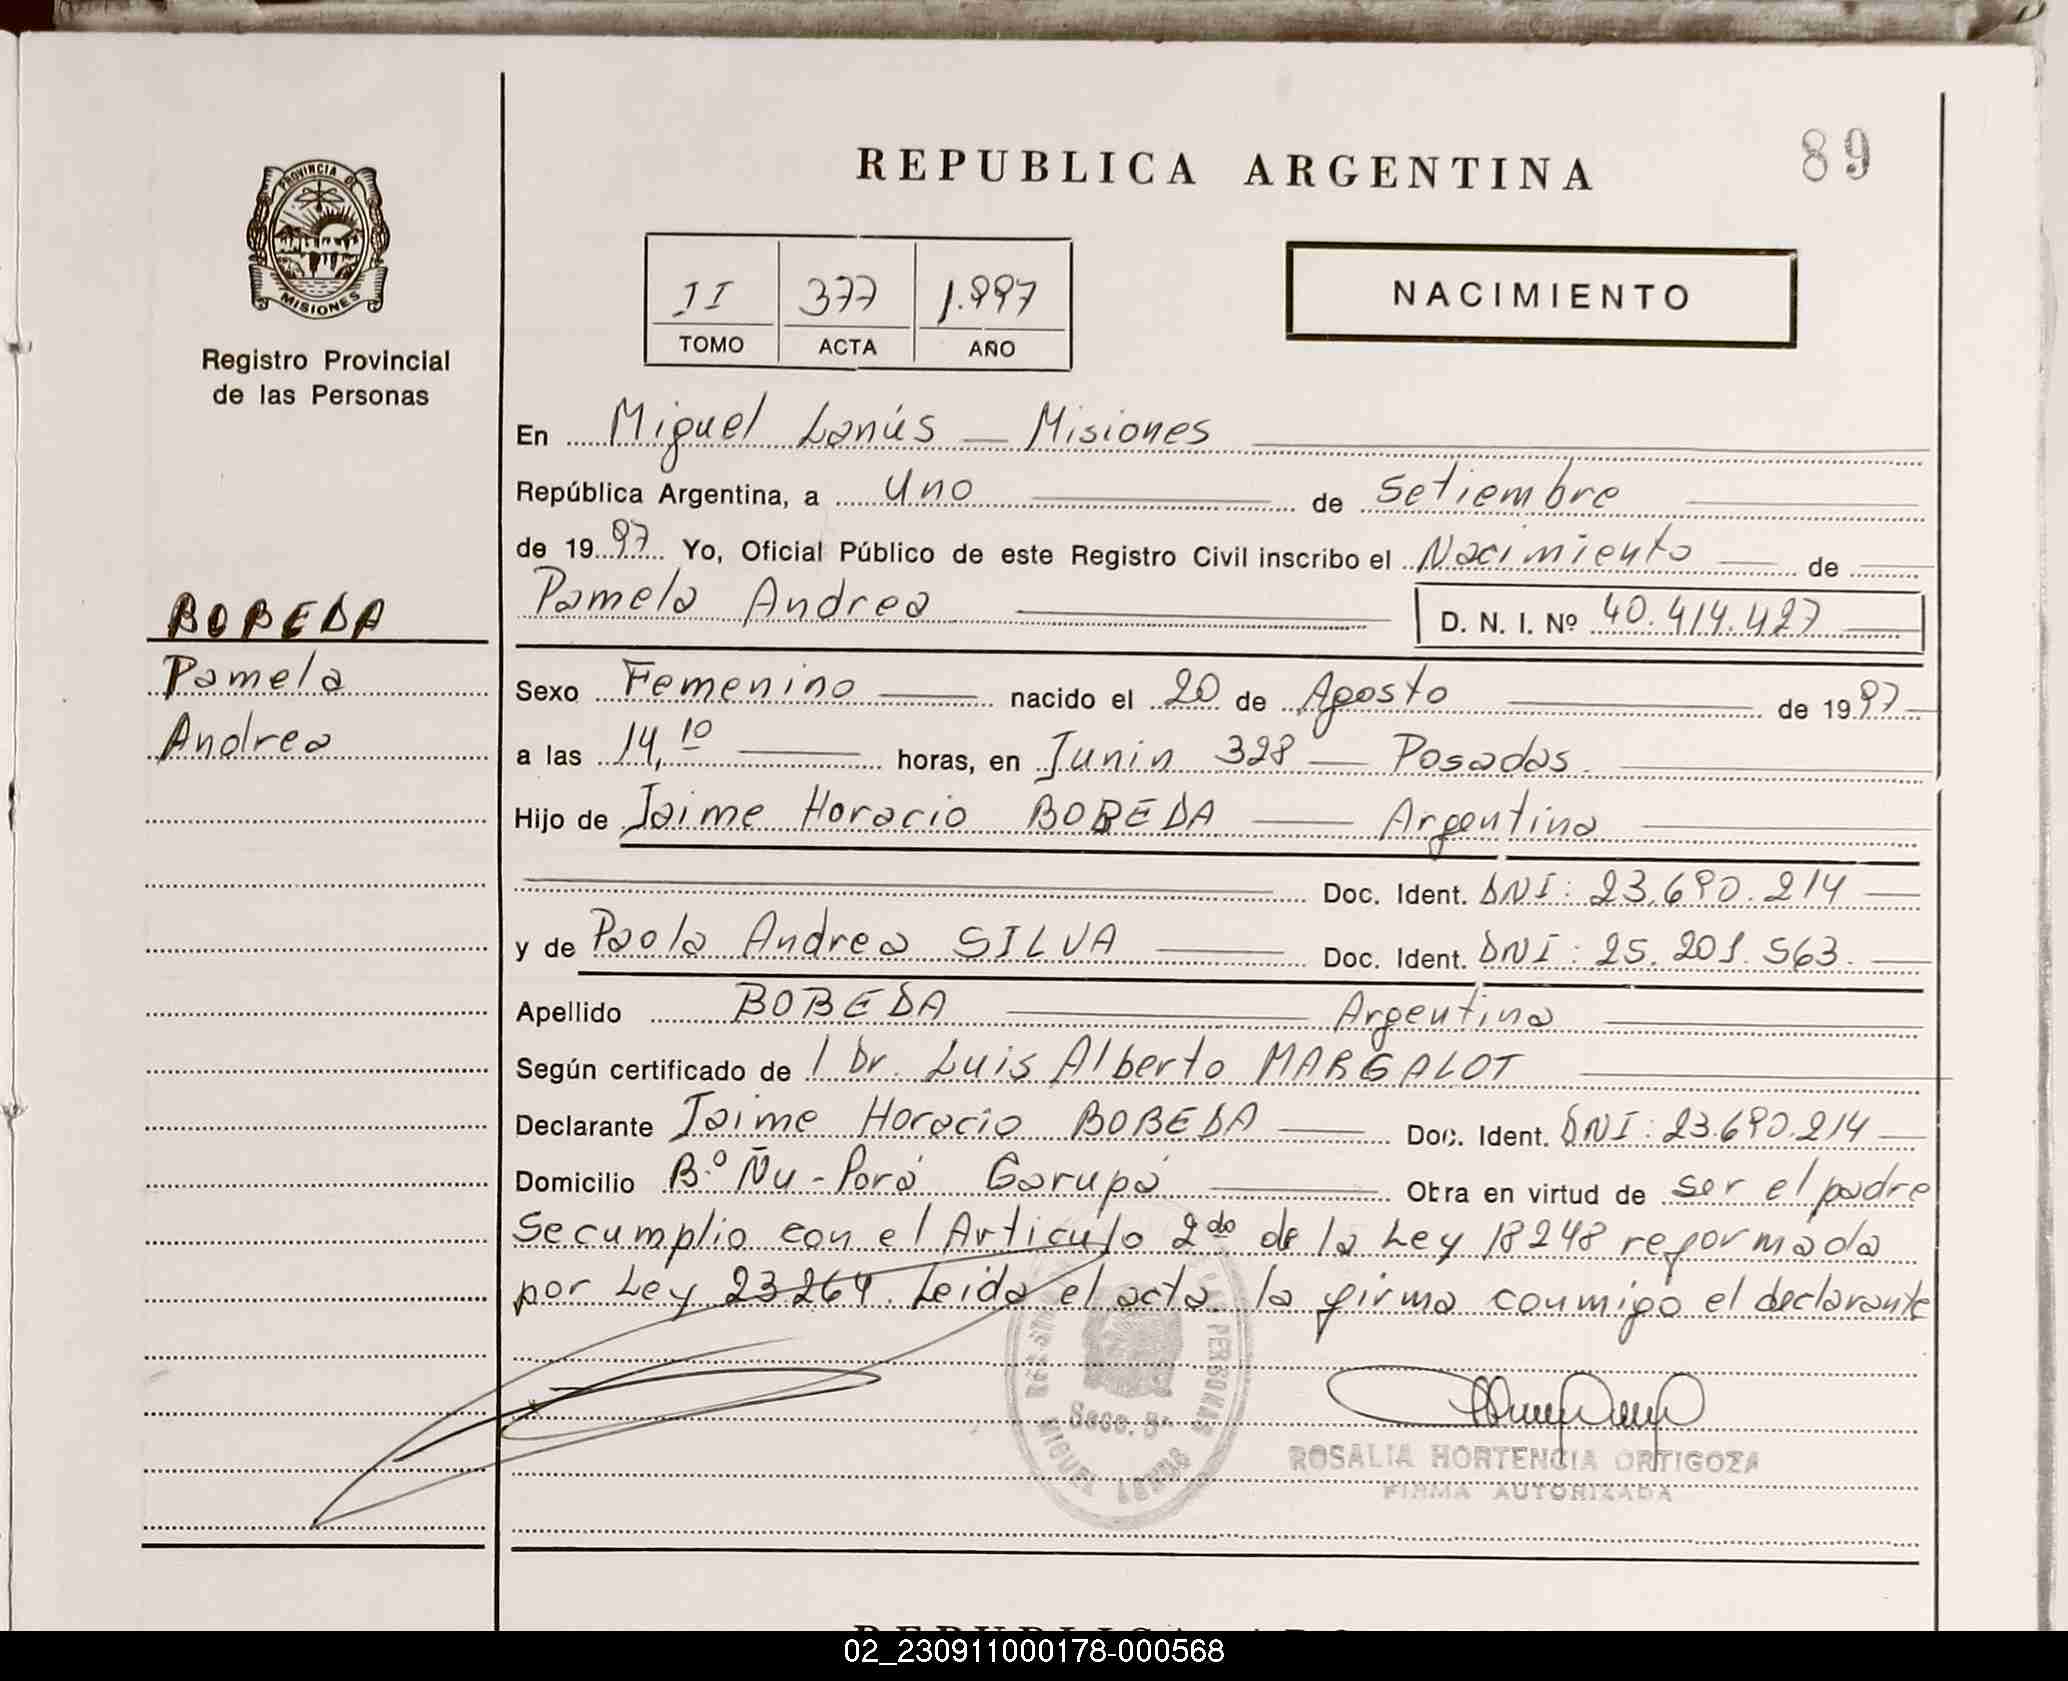 REPUBLICA ARGENTINA
89
PROVINCIA DE
MISIONES
Registro Provincial
de las Personas
II 377 1.997
TOMO ACTA AÑO
NACIMIENTO
En Miguel Lanús — Misiones
República Argentina, a uno de Setiembre
de 1997 Yo, Oficial Público de este Registro Civil inscribo el Nacimiento de
Pamela Andrea D. N. I. Nº 40.414.427
BOBEDA
Pamela
Andrea
Sexo Femenino nacido el 20 de Agosto de 1997
a las 14,10 horas, en Junin 328 — Posadas.
Hijo de Jaime Horacio BOBEDA — Argentina
Doc. Ident. DNI: 23.690.214
y de Paola Andrea SILVA Doc. Ident. DNI: 25.201.563.
Apellido BOBEDA Argentina
Según certificado de l Dr. Luis Alberto MARGALOT
Declarante Jaime Horacio BOBEDA Doc. Ident. DNI: 23.690.214
Domicilio B.º Ñu-Porá Garupá Obra en virtud de ser el padre
Se cumplio con el Articulo 2do de la Ley 18248 reformada
por Ley 23264. Leida el acta la firma conmigo el declarante
PERSONAS
Secc. 5ª
MIGUEL LANUS
ROSALIA HORTENCIA ORTIGOZA
FIRMA AUTORIZADA
02_230911000178-000568